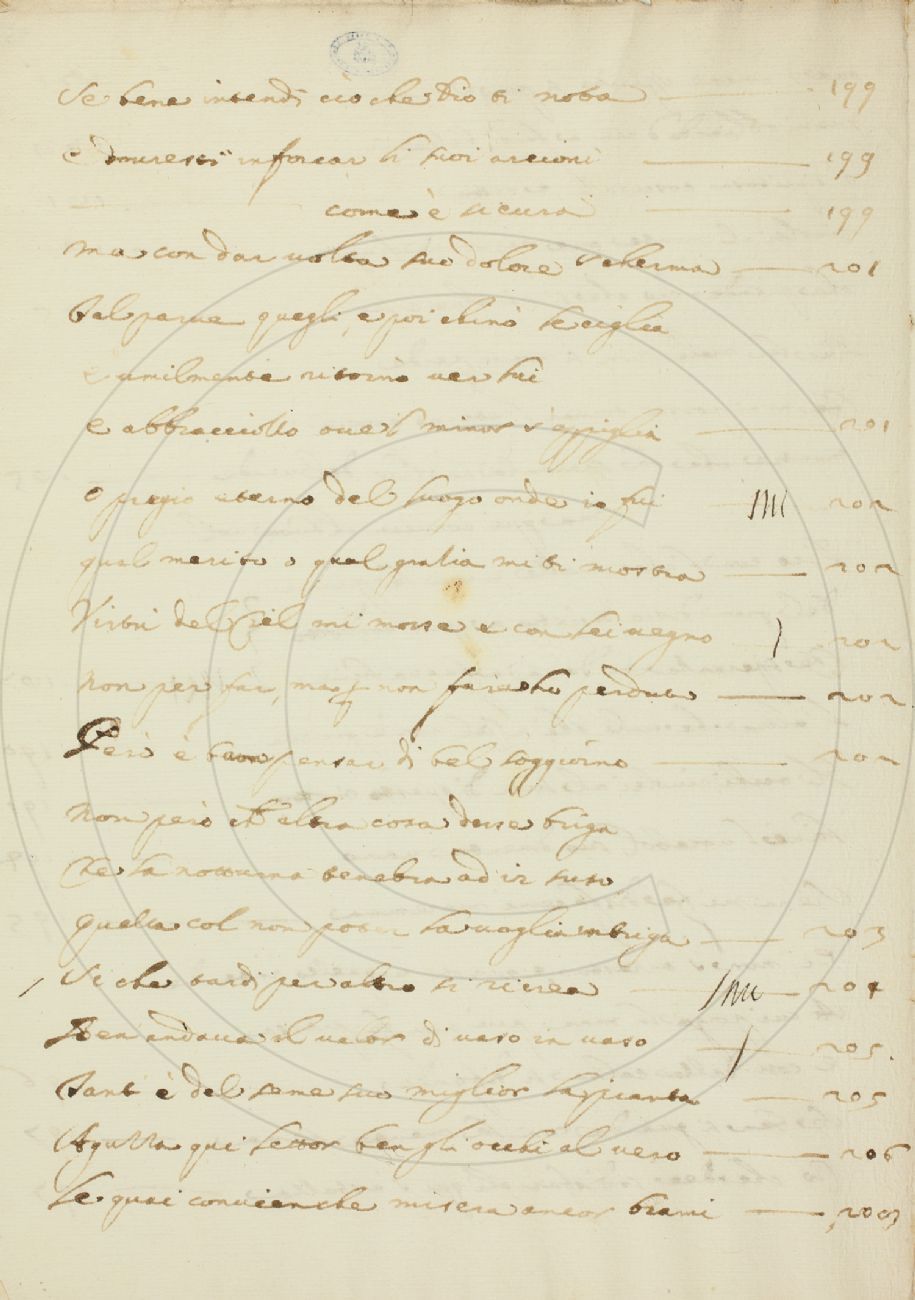 Se bene intendi ciò che Dio ti nota 199
e dovresti inforcar li suoi arcioni 199
come è sicura 199
ma con dar volta suo dolore scherma 201
Tal parve quegli, e poi chinò le ciglia
e umilmente ritornò ver lui
e abbracciollo ove il minor s'appiglia 201
o pregio eterno del luogo onde io fui 202
qual merito o qual gratia mi ti mostra 202
Virtù del Ciel mi mosse e con lei vegno 202
Non per far, ma p non fare ho perduto 202
Però è buon pensar di bel soggiorno 202
Non però ch'altra cosa desse briga
Che la notturna tenebra ad ir suso
quella col non poter la voglia intriga 203
Sì che tardi per altro si ricrea 204
Ben andava il valor di vaso in vaso 205.
Tant è del seme suo miglior la pianta 205
Aguzza qui lettor ben gli occhi al vero 206
Le quai convien che misera ancor brami 207